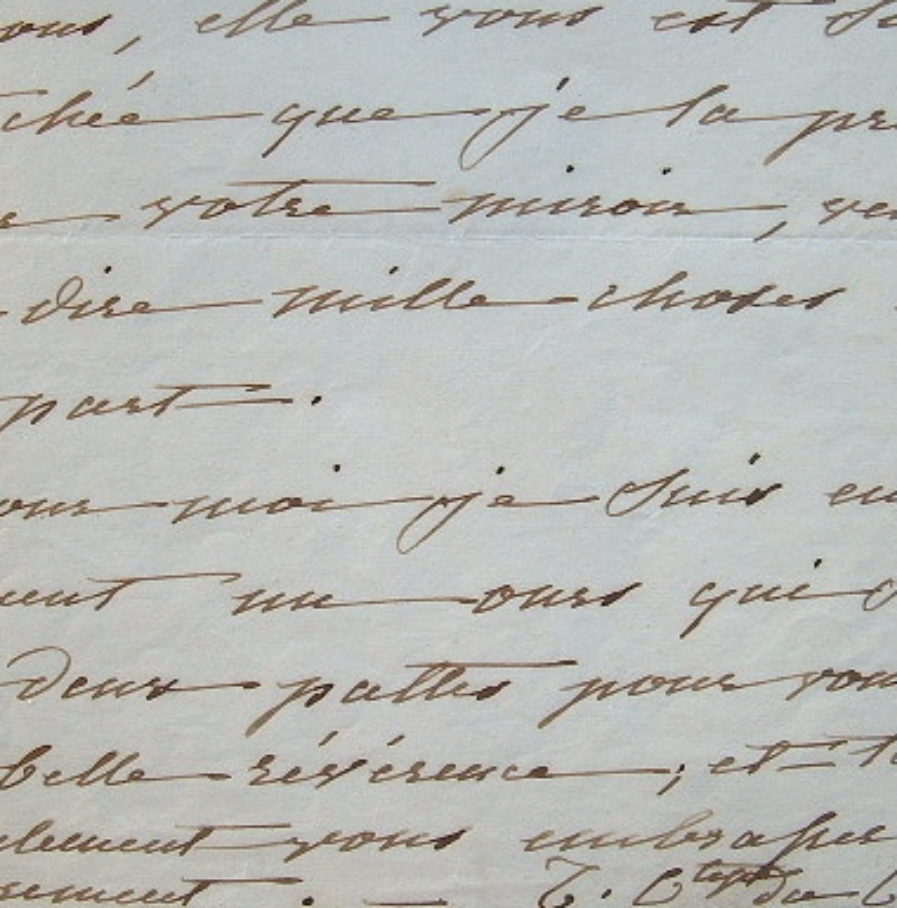 ous, elle vous est
chée que je la pr
e votre miroir, ve
dire mille choses
part.
our moi je suis en
ment un ours qui
deux pattes pour vou
belle révérence; et t
lement vous embrasse
rement. — T. C